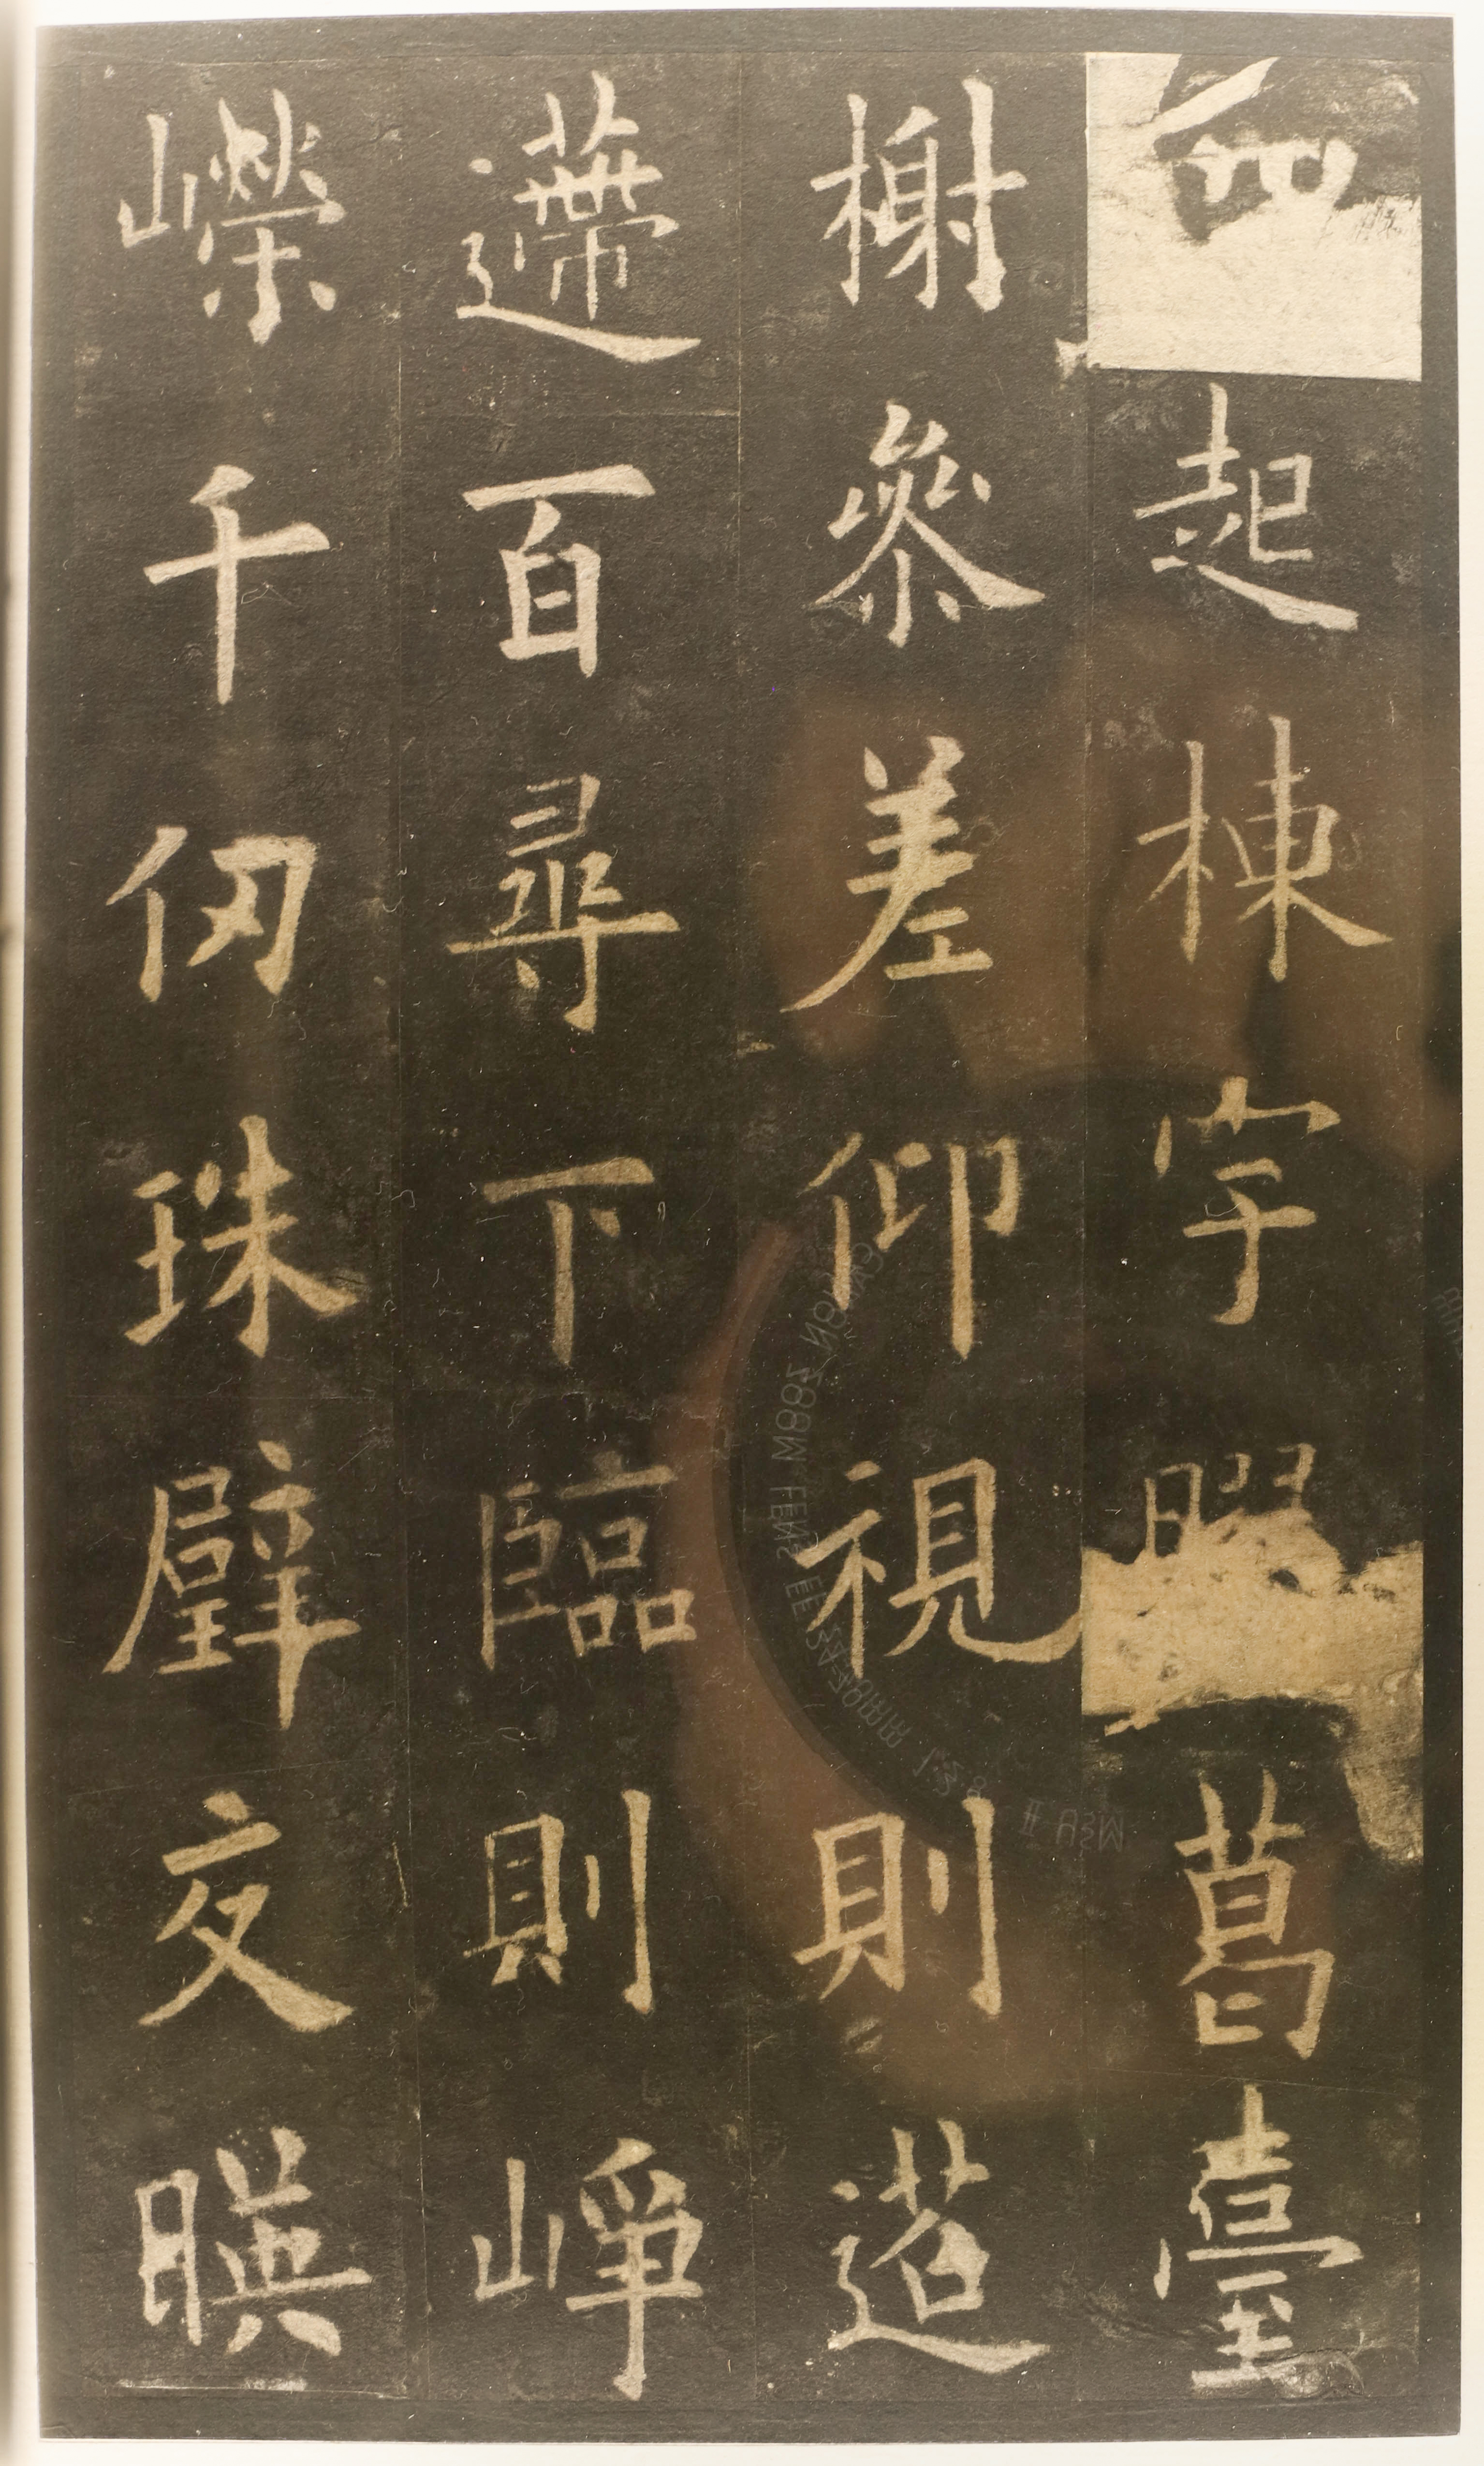 四起棟宇膠葛臺
榭參差仰視則迢
遰百尋下臨則崢
嶸千仞珠璧交暎